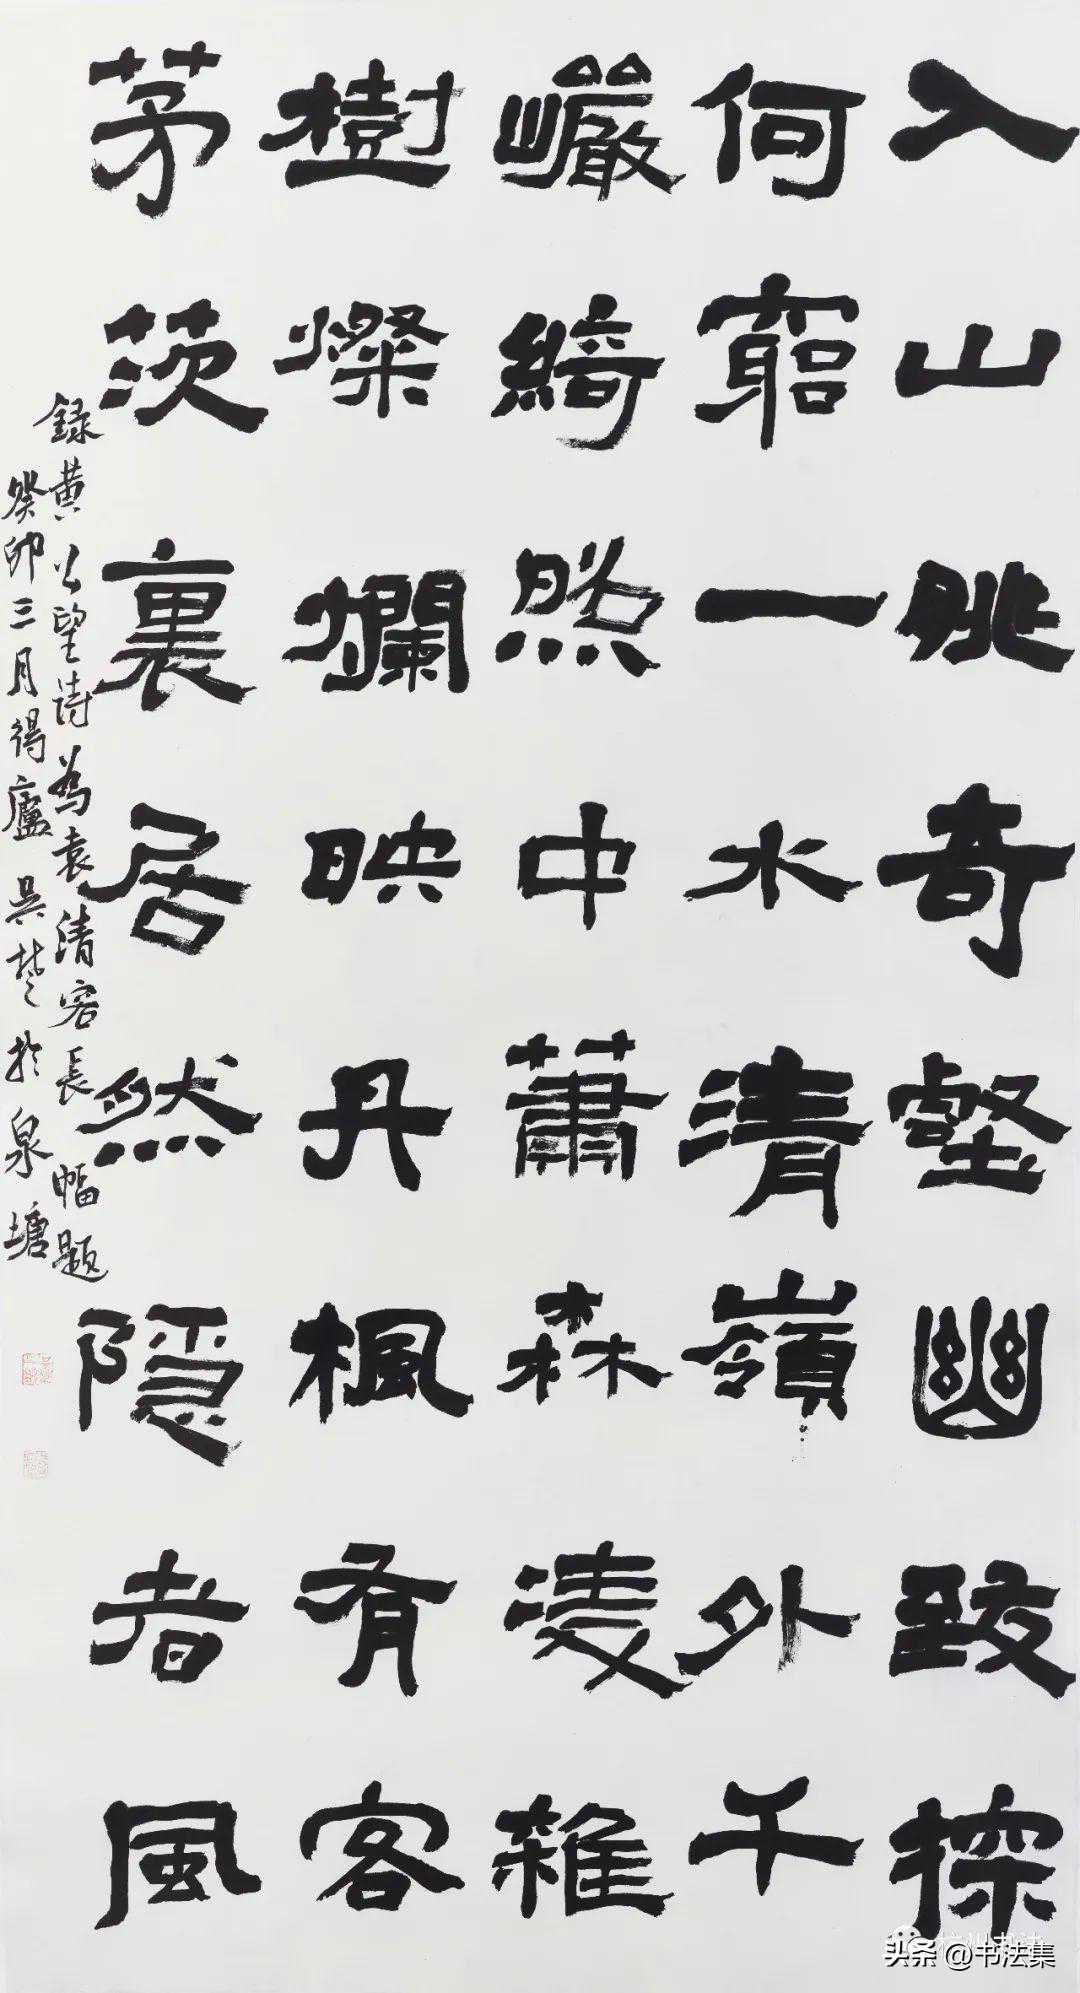 入山眺奇壑幽致探
何窮一水清嶺外千
巖綺照中蕭森凌雜
樹燦爛映丹楓有客
茅茨裏居然隱者風
録黄公望詩為袁清容長幅題
癸卯三月得廬吳楚於泉塘
头条 @书法集